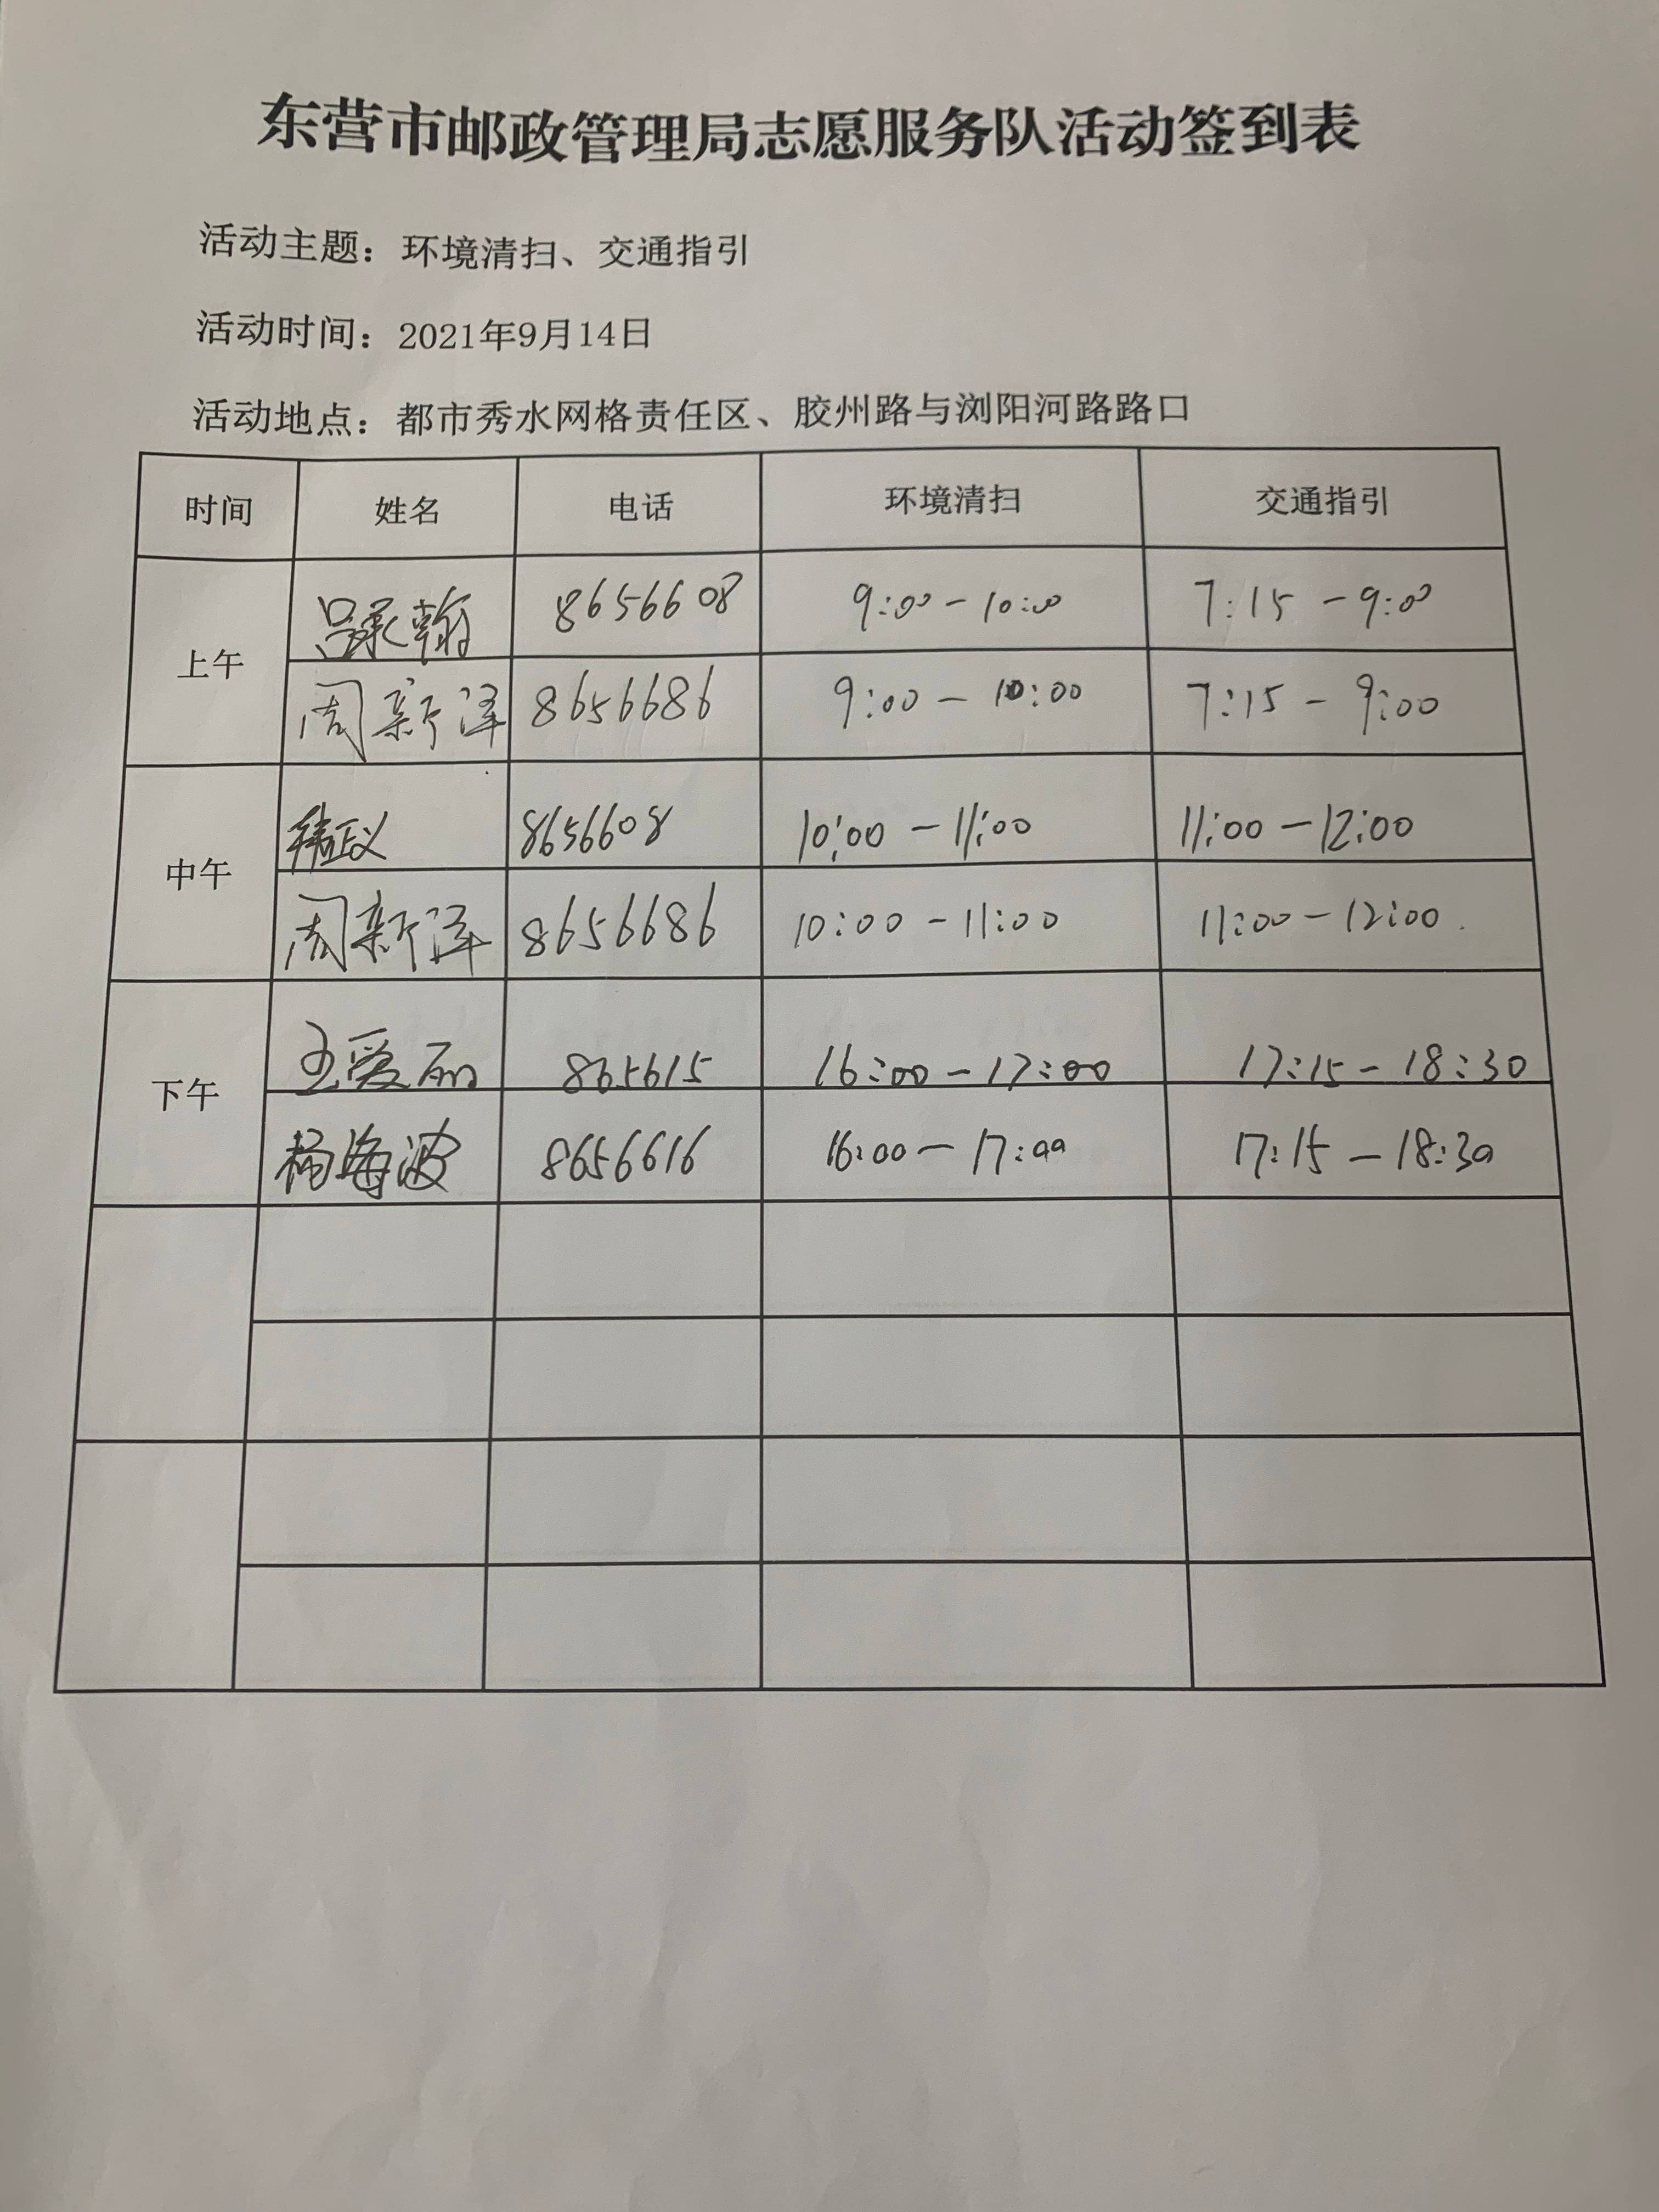 东营市邮政管理局志愿服务队活动签到表
活动主题：环境清扫、交通指引
活动时间：2021年9月14日
活动地点：都市秀水网格责任区、胶州路与浏阳河路路口
时间 姓名 电话 环境清扫 交通指引
上午 吕承翰 8656608 9:00-10:00 7:15-9:00
周新泽 8656686 9:00-10:00 7:15-9:00
中午 8656608 10:00-11:00 11:00-12:00
周新泽 8656686 10:00-11:00 11:00-12:00.
下午 王爱丽 865615 16:00-17:00 17:15-18:30
杨海波 8656616 16:00-17:00 17:15-18:30